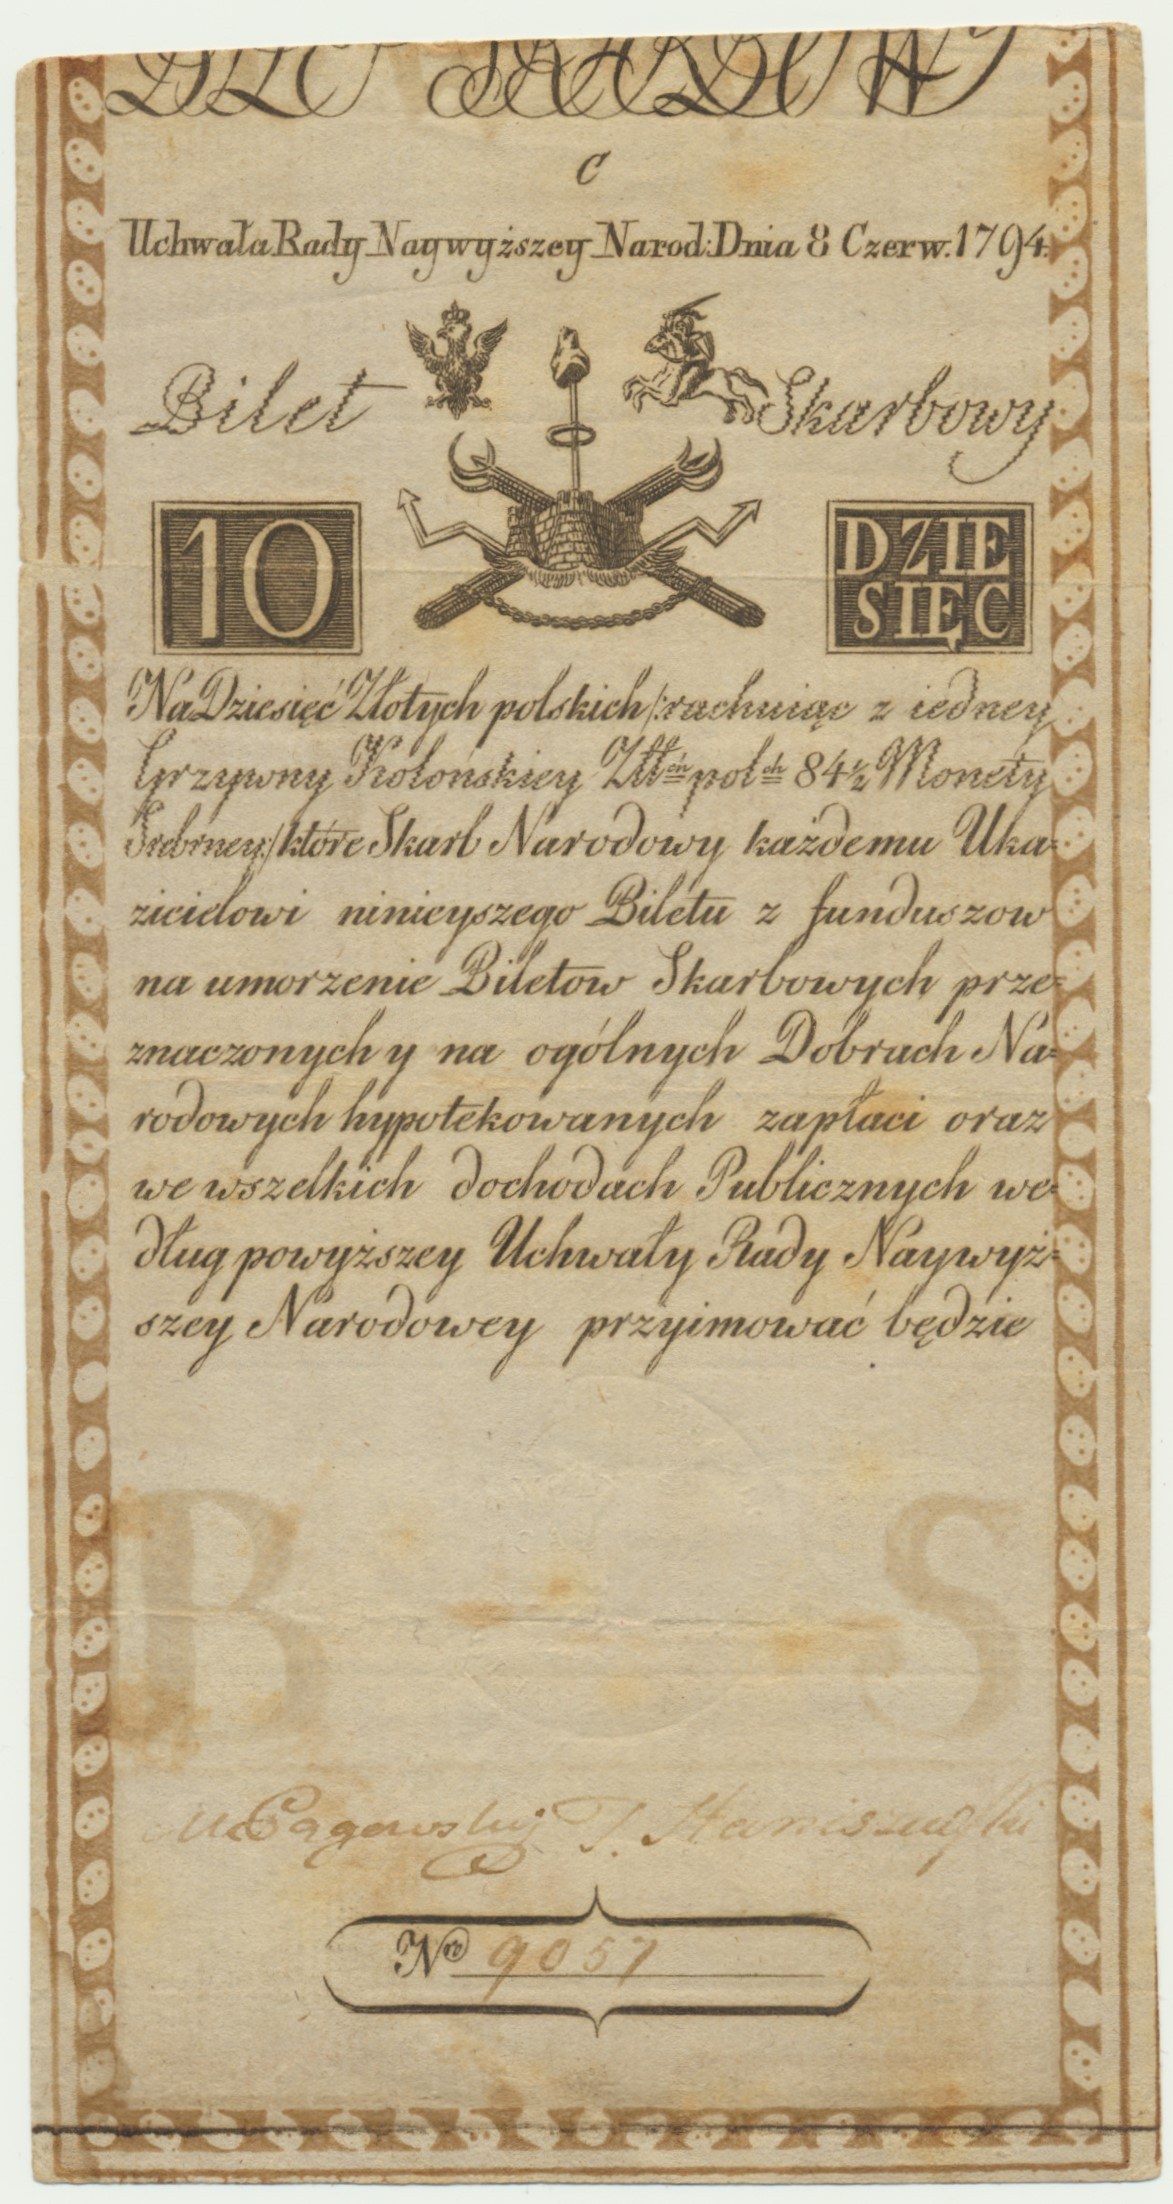 BILET SKARBOWY
C
Uchwała Rady Naywyższey Narod: Dnia 8 Czerw. 1794.
Bilet Skarbowy
10 DZIE
SIĘĆ
Na Dziesięć Złotych polskich /:rachuiąc z iedney
Grzywny Kolońskiey Złł:ch pol:ch 84½ Monety
Srebrney:/ które Skarb Narodowy każdemu Uka-
zicielowi ninieyszego Biletu z funduszow
na umorzenie Biletow Skarbowych prze-
znaczonych y na ogólnych Dobrach Na-
rodowych hypotekowanych zapłaci oraz
we wszelkich dochodach Publicznych we-
dług powyższey Uchwały Rady Naywyż-
szey Narodowey przyimować będzie
B S
T. Staniszewski
Nro 9057